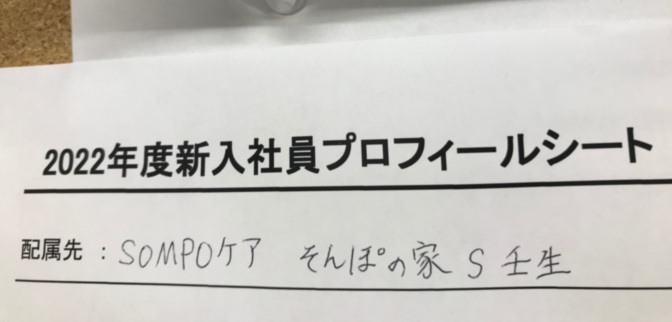 2022年度新入社員プロフィールシート
配属先 : SOMPOケア そんぽの家 S 壬生